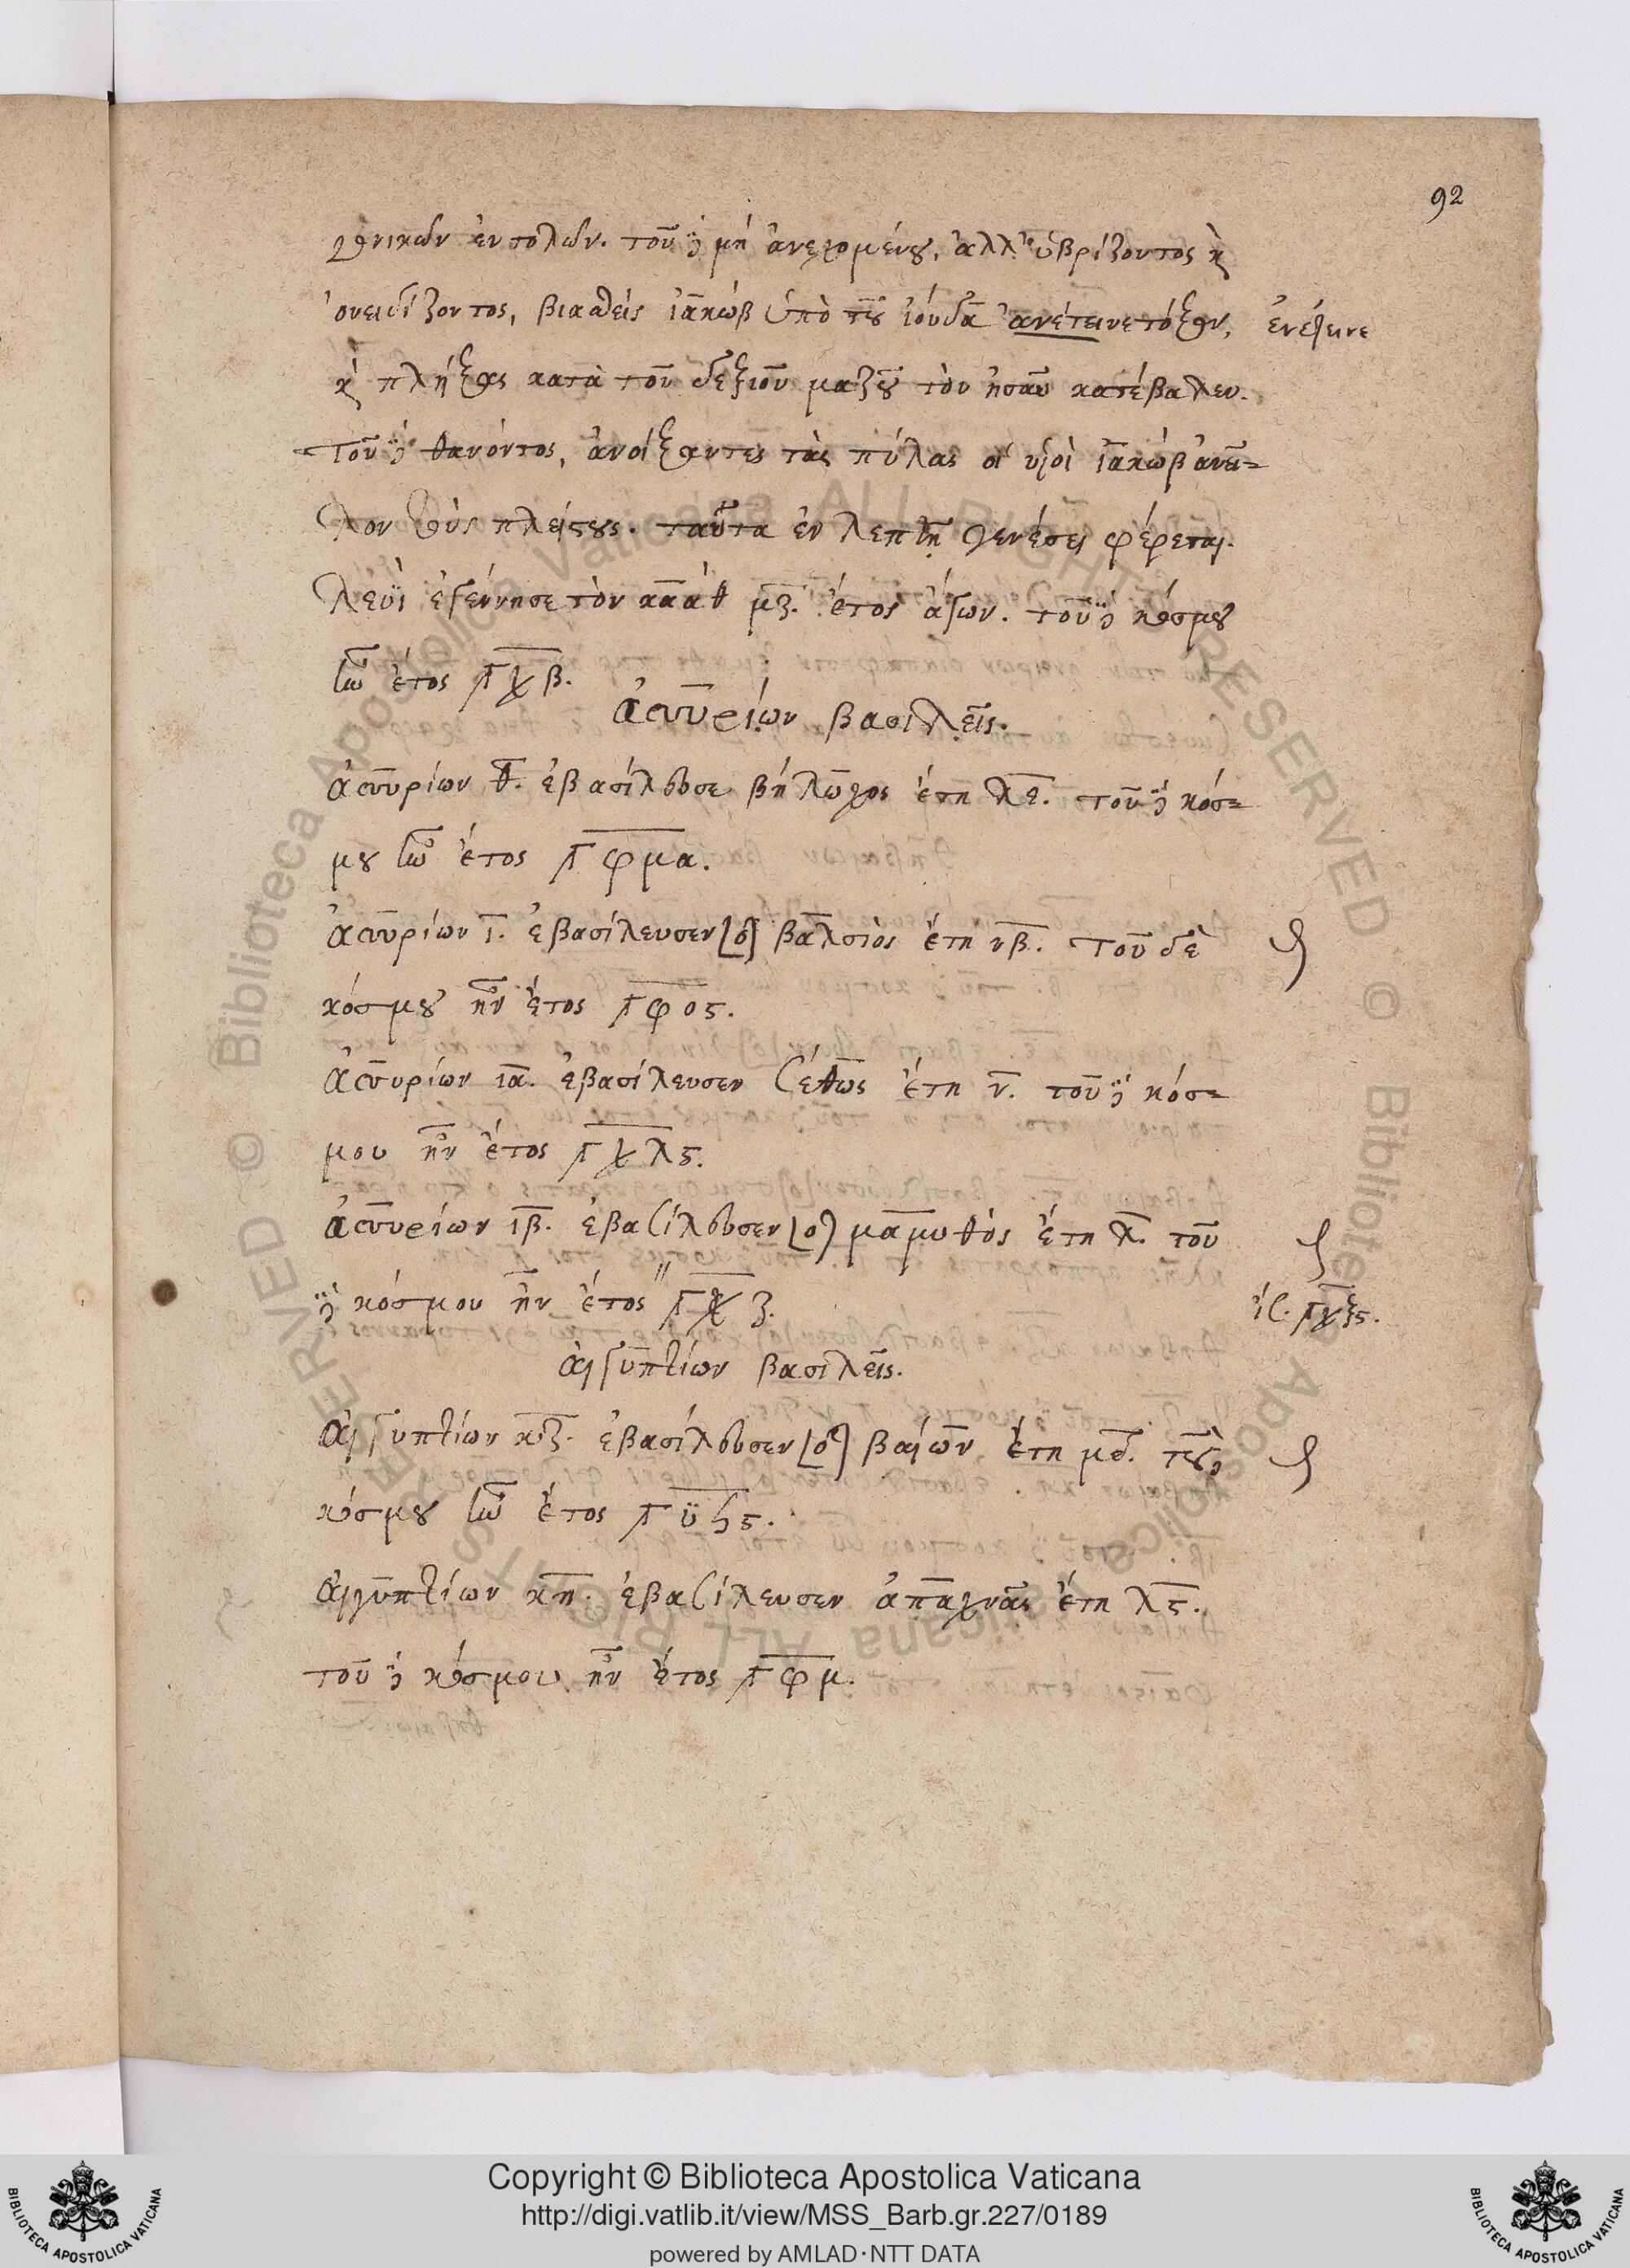 92
γονικῶν ἐντολῶν. τοῦ δὲ μὴ ἀνεχομένου, ἀλλ' ὑβρίζοντος κ
ὀνειδίζοντος, βιασθεὶς ἰακὼβ ὑπὸ τοῦ ἰούδα ἀνέτεινε τόξον, ἐνέτεινε
κ πλήξας κατὰ τοῦ δεξιοῦ μαζοῦ τὸν ἠσαῦ κατέβαλεν.
τοῦ δὲ θανόντος, ἀνοίξαντες τὰς πύλας οἱ υἱοὶ ἰακὼβ ἀνεῖ=
λον τοὺς πλείστους. ταῦτα ἐν λεπτῇ γενέσει φέρεται.
λευὶ ἐγέννησε τὸν καὰθ μζ. ἔτος ἄγων. τοῦ δὲ κόσμου
ἦν ἔτος ͵γχβ.
ἀσσυρίων βασιλεῖς.
ἀσσυρίων θ. ἐβασίλευσε βήλωχος ἔτη λε. τοῦ δὲ κόσ=
μου ἦν ἔτος ͵γφμα.
ἀσσυρίων ι. ἐβασίλευσεν [ὁ] βαλσιὸς ἔτη νβ. τοῦ δὲ
κόσμου ἦν ἔτος ͵γφος.
ἀσσυρίων ια. ἐβασίλευσεν σέθως ἔτη ν. τοῦ δὲ κόσ=
μου ἦν ἔτος ͵γχλς.
ἀσσυρίων ιβ. ἐβασίλευσεν [ὁ] μαμυθὸς ἔτη λ. τοῦ
δὲ κόσμου ἦν ἔτος ͵γχζ. ἰς. ͵γχξς.
αἰγυπτίων βασιλεῖς.
αἰγυπτίων κζ. ἐβασίλευσεν [ὁ] βαίων ἔτη μδ. τοῦ δὲ
κόσμου ἦν ἔτος ͵γυϟς.
αἰγυπτίων κη. ἐβασίλευσεν ἀπαχνὰς ἔτη λς.
τοῦ δὲ κόσμου ἦν ἔτος ͵γφμ.
Copyright © Biblioteca Apostolica Vaticana
http://digi.vatlib.it/view/MSS_Barb.gr.227/0189
powered by AMLAD·NTT DATA
BIBLIOTECA APOSTOLICA VATICANA
BIBLIOTECA APOSTOLICA VATICANA